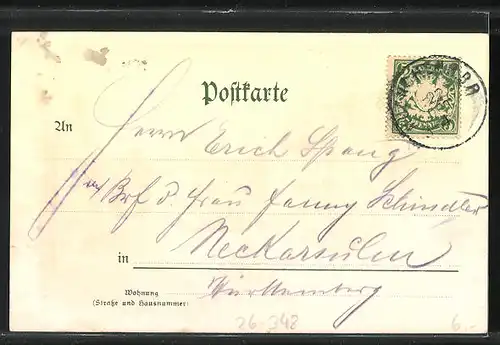 Postkarte
An Herrn Erich Spang
Brf. d. Frau Fanny Schindler
in Neckarsulm
Württemberg
Wohnung
(Straße und Hausnummer)
26-348
6.-